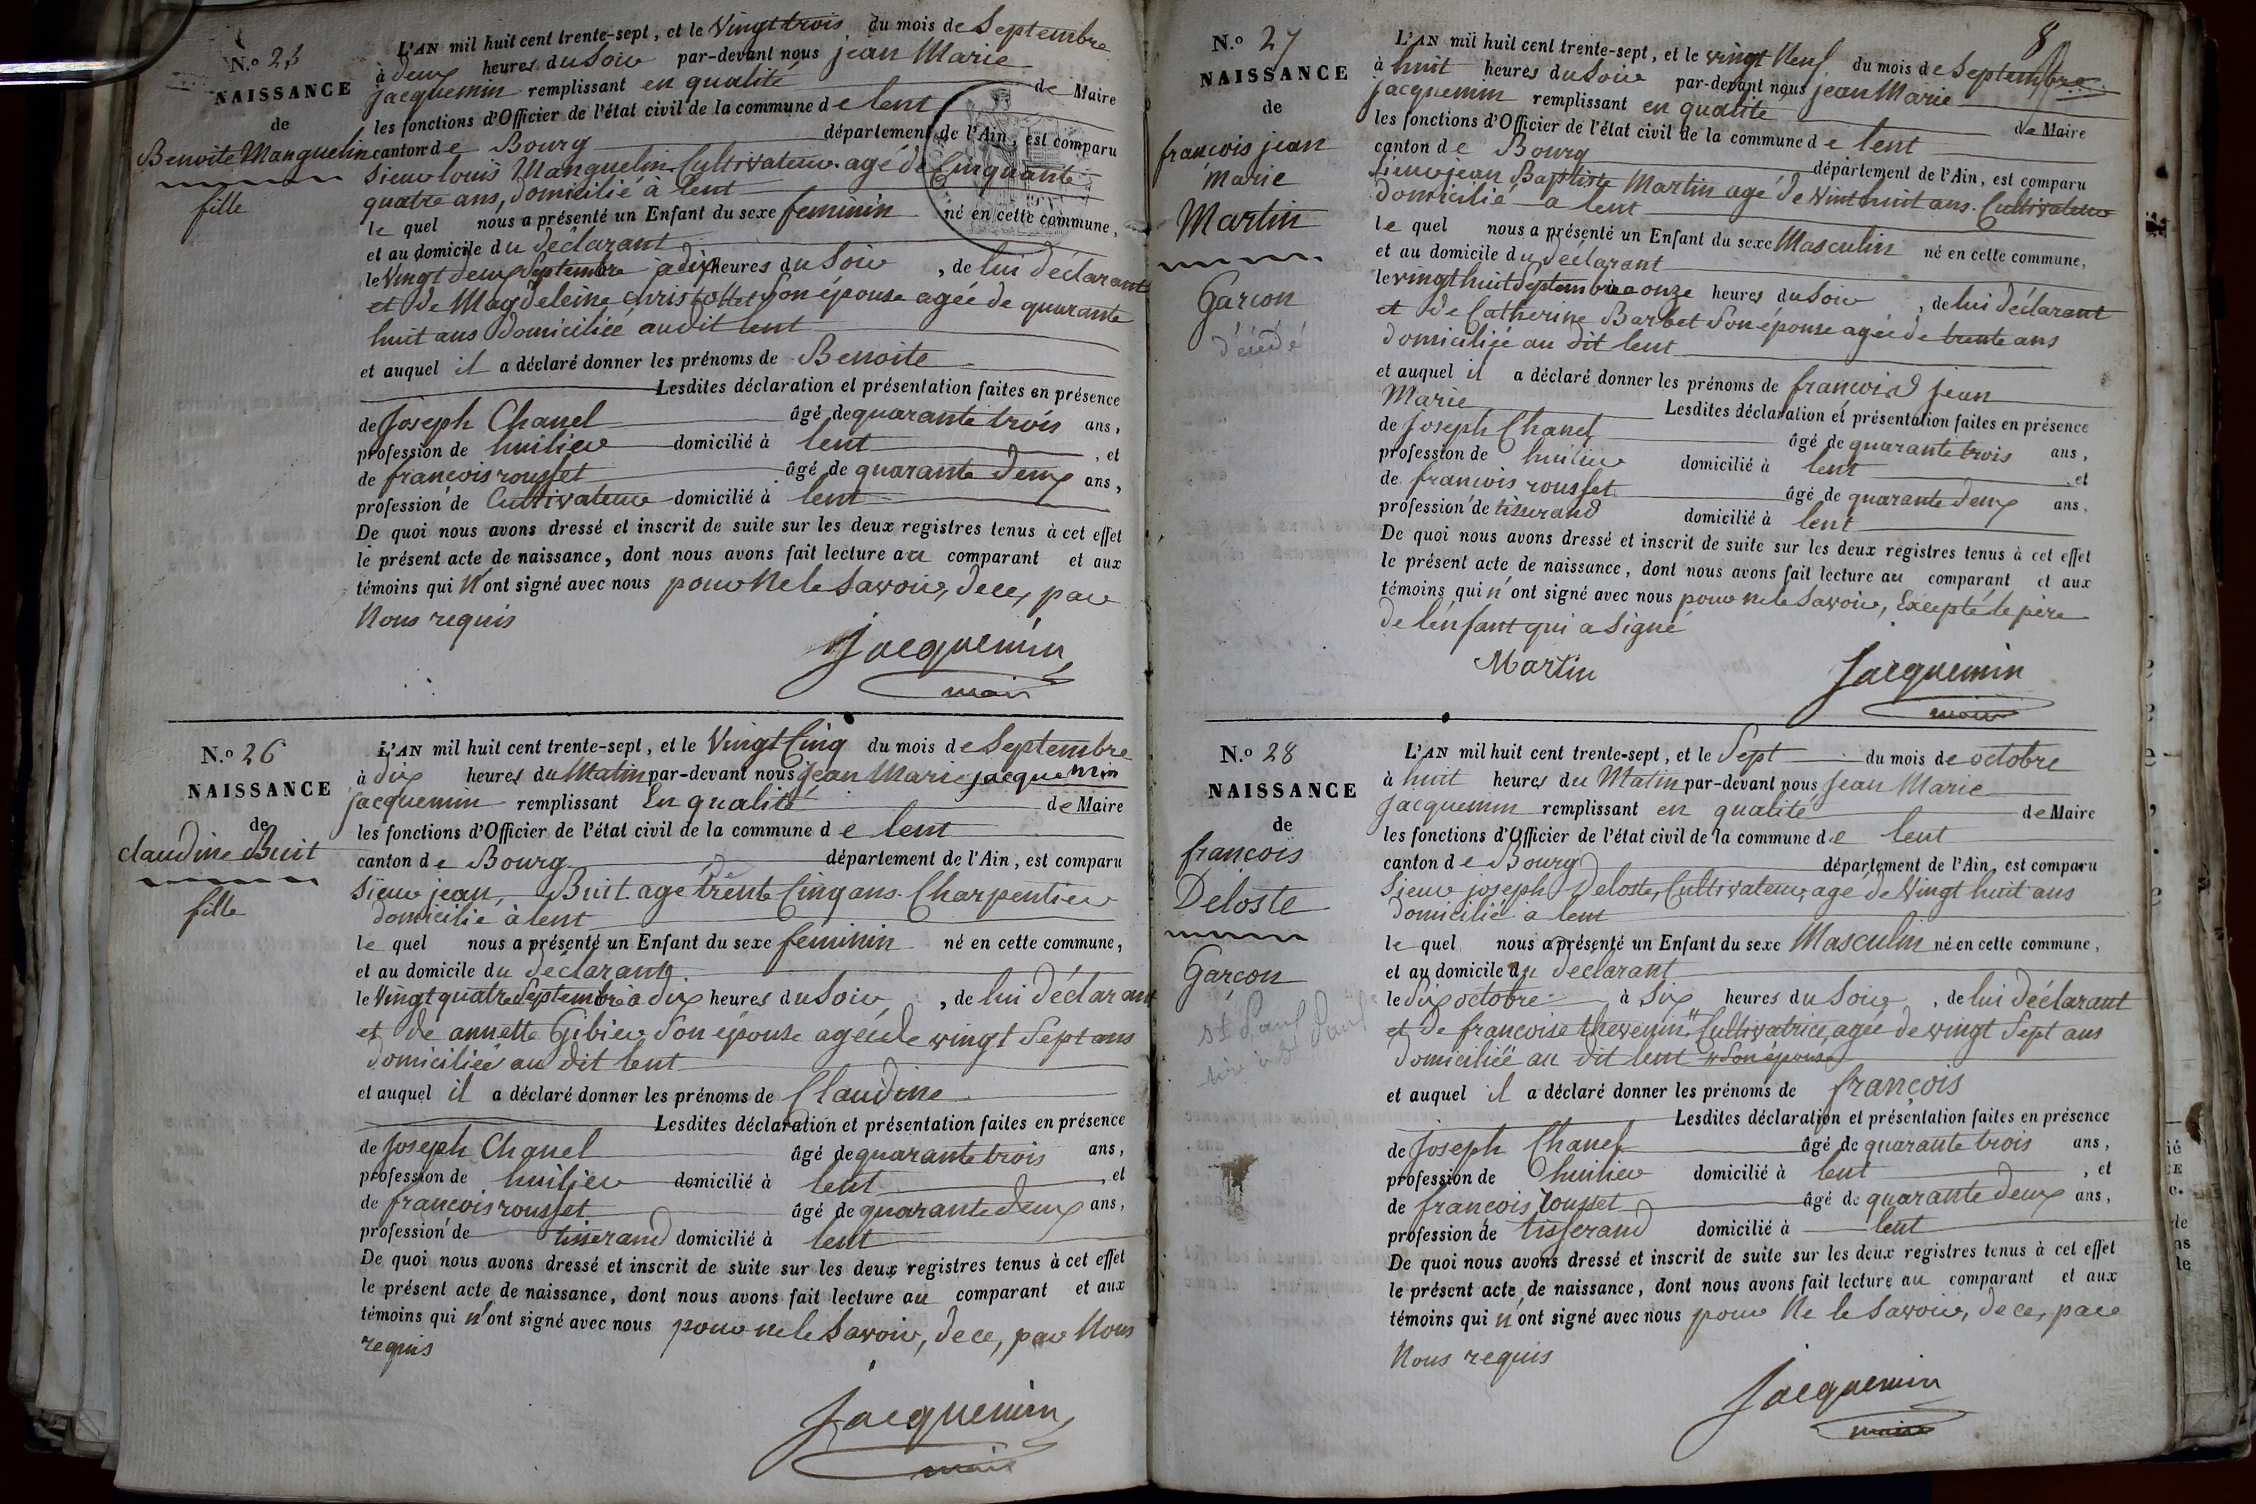 N.º 25
NAISSANCE
de
Benoite Manquelin
fille
L'AN mil huit cent trente-sept, et le Vingt trois du mois de Septembre
à deux heures du Soir par-devant nous jean Marie
jacquemin remplissant en qualité de Maire
les fonctions d'Officier de l'état civil de la commune de lent
canton de Bourg département de l'Ain, est comparu
Sieur louis Manquelin Cultivateur agé de Cinquante
quatre ans, domicilié à lent
le quel nous a présenté un Enfant du sexe feminin né en cette commune,
et au domicile du déclarant
le Vingt deux Septembre a dix heures du Soir, de lui déclarant
et de Magdeleine christollet Son épouse agée de quarante
huit ans domiciliée audit lent
et auquel il a déclaré donner les prénoms de Benoite
Lesdites déclaration et présentation faites en présence
de Joseph Chanel âgé de quarante trois ans,
profession de huilier domicilié à lent, et
de francois rousset âgé de quarante deux ans,
profession de Cultivateur domicilié à lent
De quoi nous avons dressé et inscrit de suite sur les deux registres tenus à cet effet
le présent acte de naissance, dont nous avons fait lecture au comparant et aux
témoins qui n'ont signé avec nous pour Ne le Savoir, de ce, par
Nous requis
Jacquemin
maire
N.º 26
NAISSANCE
de
claudine Buit
fille
L'AN mil huit cent trente-sept, et le Vingt Cinq du mois de Septembre
à dix heures du Matin par-devant nous jean Marie jacquemin
jacquemin remplissant En qualité de Maire
les fonctions d'Officier de l'état civil de la commune de lent
canton de Bourg département de l'Ain, est comparu
Sieur jean, Buit agé de trente Cinq ans Charpentier
domicilié à lent
le quel nous a présenté un Enfant du sexe feminin né en cette commune,
et au domicile du déclarant
le Vingt quatre Septembre à dix heures du Soir, de lui déclarant
et de annette Gibier Son épouse agée de vingt Sept ans
domiciliée au dit lent
et auquel il a déclaré donner les prénoms de Claudine
Lesdites déclaration et présentation faites en présence
de Joseph Chanel âgé de quarante trois ans,
profession de huilier domicilié à lent, et
de francois rousset âgé de quarante deux ans,
profession de tisserand domicilié à lent
De quoi nous avons dressé et inscrit de suite sur les deux registres tenus à cet effet
le présent acte de naissance, dont nous avons fait lecture au comparant et aux
témoins qui n'ont signé avec nous pour ne le Savoir, de ce, par Nous
requis
Jacquemin
maire
8
N.º 27
NAISSANCE
de
francois jean
marie
Martin
Garçon
décédé
L'AN mil huit cent trente-sept, et le vingt Neuf du mois de Septembre
à huit heures du Soir par-devant nous jean Marie
jacquemin remplissant en qualité de Maire
les fonctions d'Officier de l'état civil de la commune de lent
canton de Bourg département de l'Ain, est comparu
Sieur jean Baptiste Martin agé de Vint huit ans Cultivateur
domicilié a lent
le quel nous a présenté un Enfant du sexe Masculin né en cette commune,
et au domicile du déclarant
le vingt huit Septembre a onze heures du Soir, de lui déclarant
et de Catherine Barbet Son épouse agée de trente ans
domiciliée au dit lent
et auquel il a déclaré donner les prénoms de francois jean
Marie Lesdites déclaration et présentation faites en présence
de Joseph Chanel âgé de quarante trois ans,
profession de huilier domicilié à lent, et
de francois rousset âgé de quarante deux ans,
profession de tisserand domicilié à lent
De quoi nous avons dressé et inscrit de suite sur les deux registres tenus à cet effet
le présent acte de naissance, dont nous avons fait lecture au comparant et aux
témoins qui n'ont signé avec nous pour ne le Savoir, Excepté le père
de l'enfant qui a Signé
Martin Jacquemin
maire
N.º 28
NAISSANCE
de
francois
Deloste
Garçon
L'AN mil huit cent trente-sept, et le Sept du mois de octobre
à huit heures du Matin par-devant nous jean Marie
jacquemin remplissant en qualité de Maire
les fonctions d'Officier de l'état civil de la commune de lent
canton de Bourg département de l'Ain, est comparu
Sieur joseph Deloste, Cultivateur, agé de Vingt huit ans
domicilié à lent
le quel nous a présenté un Enfant du sexe Masculin né en cette commune,
et au domicile du déclarant
le Six octobre à Six heures du Soir, de lui déclarant
et de francoise thevenin " Cultivatrice, agée de vingt Sept ans
domiciliée au dit lent " Son épouse
et auquel il a déclaré donner les prénoms de françois
Lesdites déclaration et présentation faites en présence
de Joseph Chanel âgé de quarante trois ans,
profession de huilier domicilié à lent, et
de françois rousset âgé de quarante deux ans,
profession de tisserand domicilié à lent
De quoi nous avons dressé et inscrit de suite sur les deux registres tenus à cet effet
le présent acte de naissance, dont nous avons fait lecture au comparant et aux
témoins qui n'ont signé avec nous pour Ne le Savoir, de ce, par
Nous requis
Jacquemin
maire